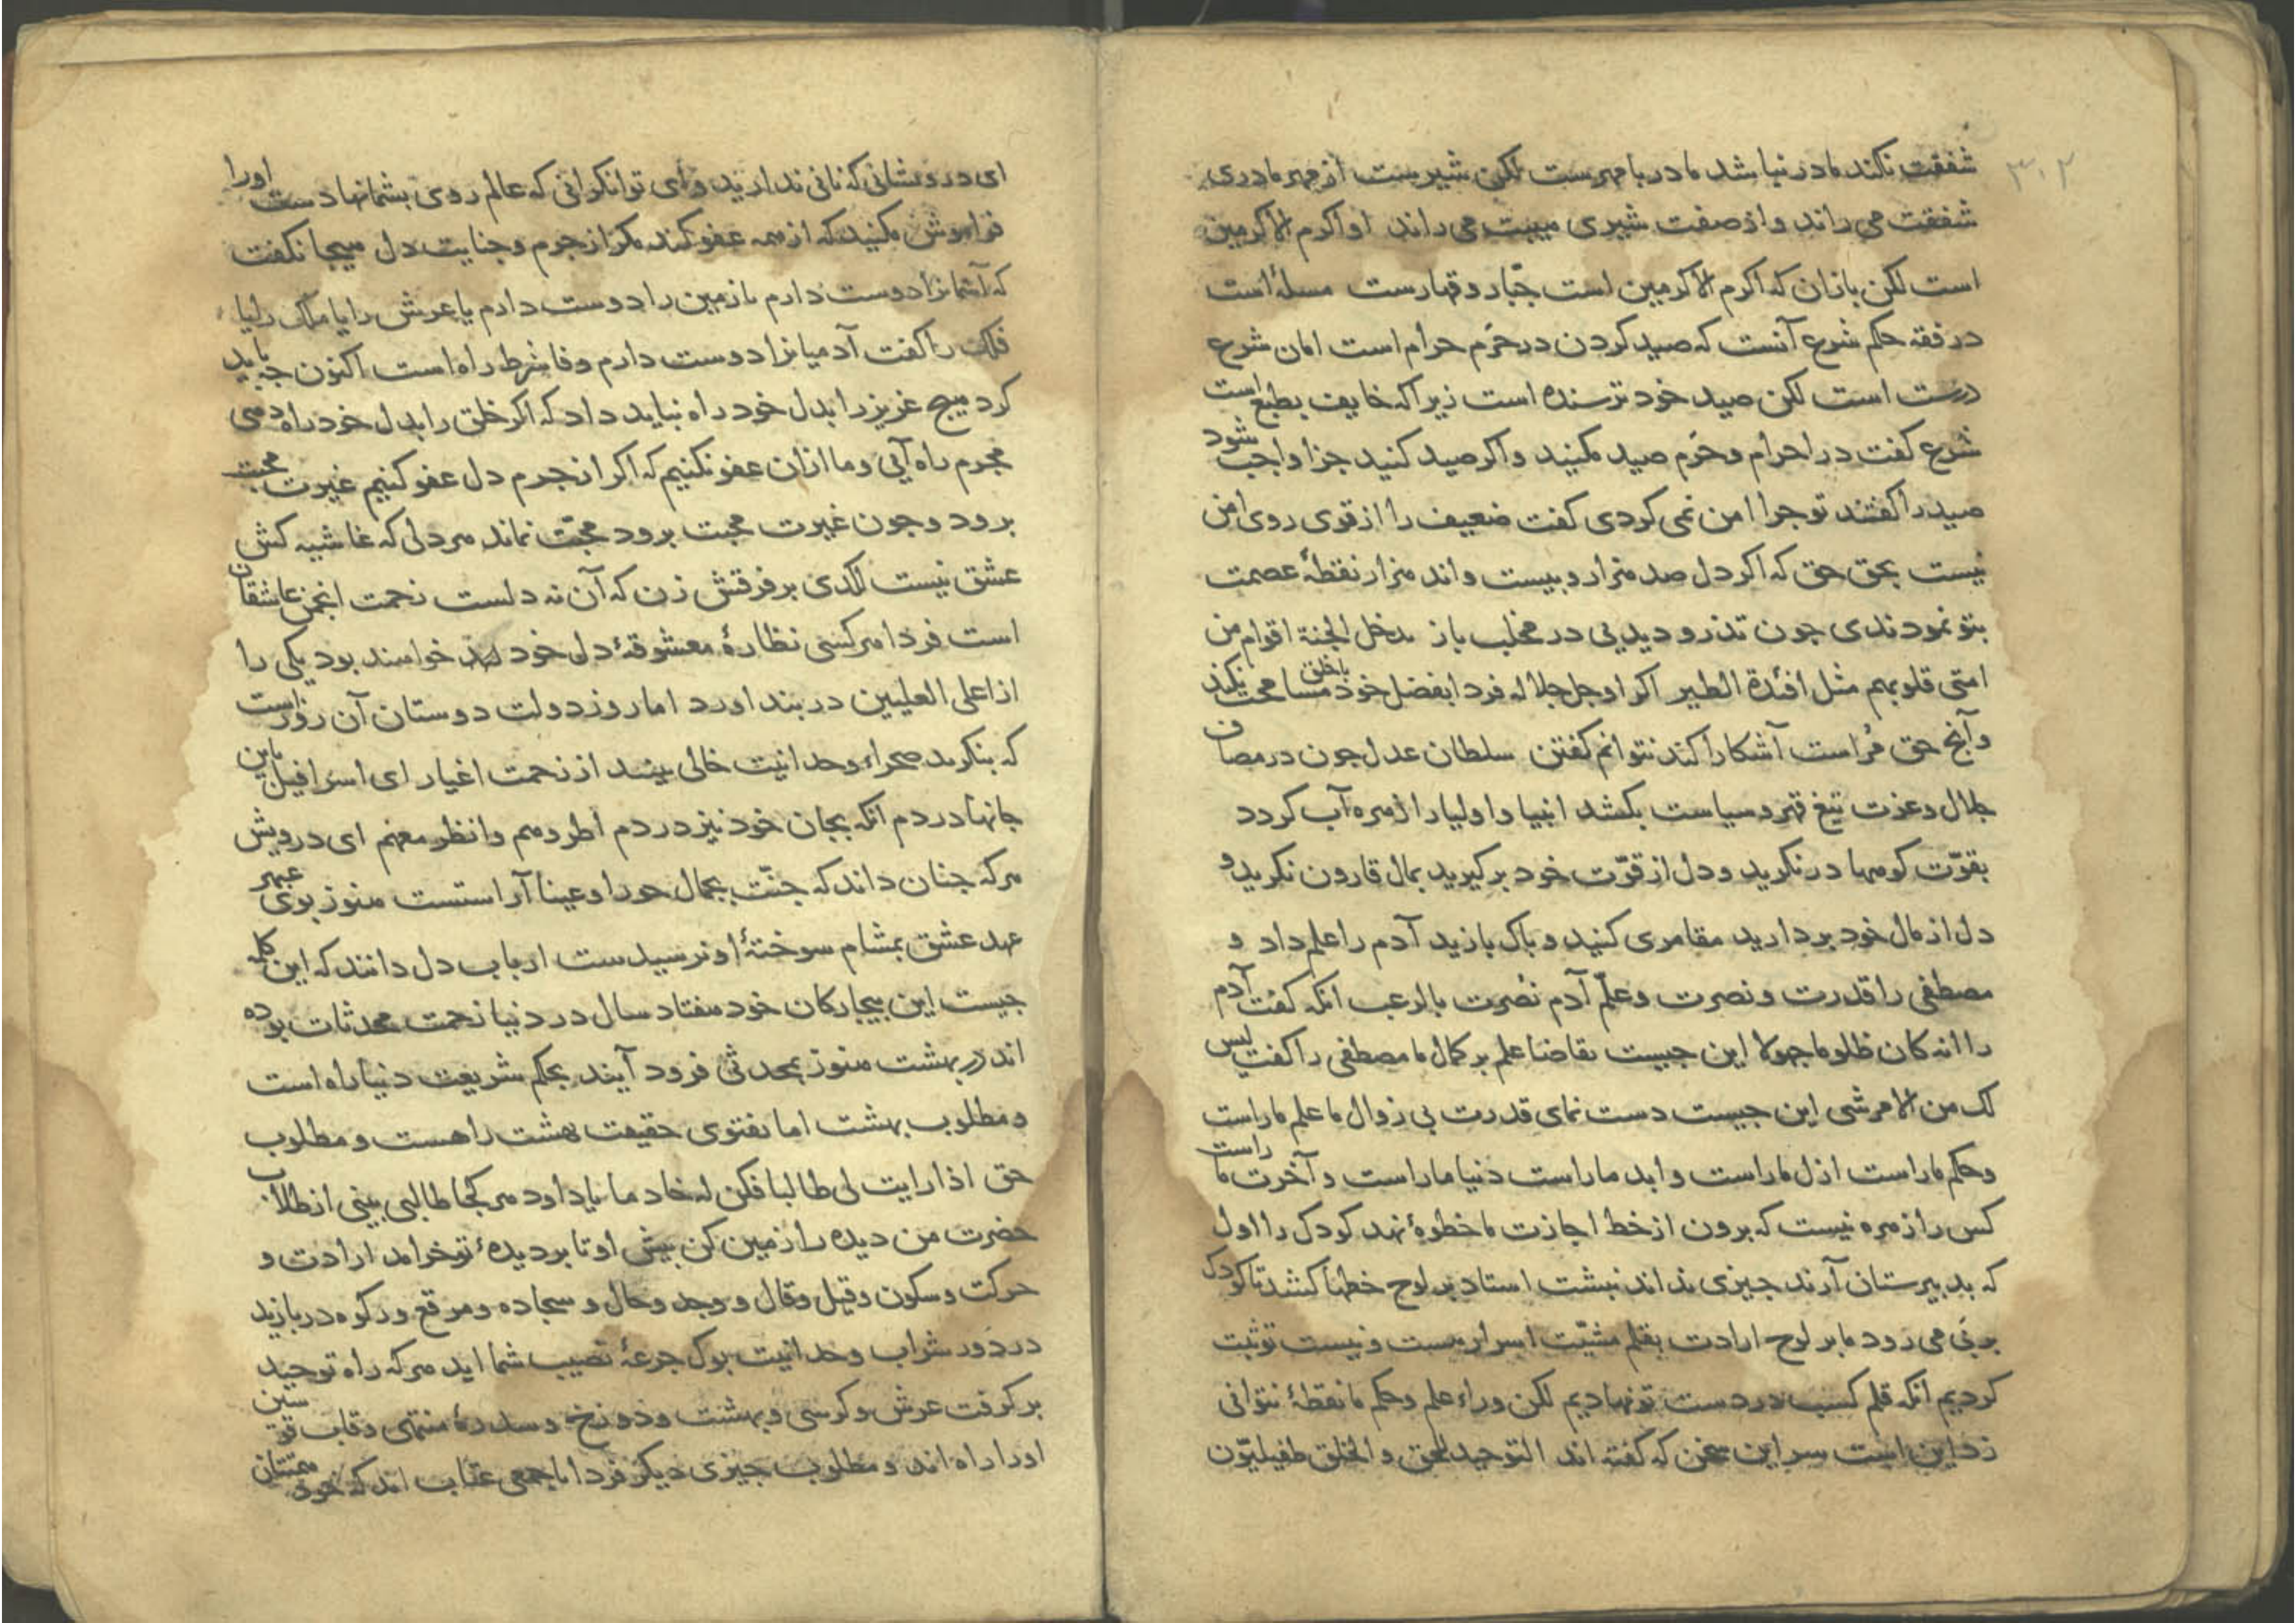 ۳۰۲
شفقت نکند مادر نباشد مادر با مهرست لکن شیرست از مهر مادری
شفقت می راند و از صفت شیری هیبت می راند او اکرم الاکرمین
است لکن بازان که اکرم الاکرمین است جبّار و قهارست مسلهٔ است
در فقه حکم شرع آنست که صید کردن در حَرَم حرام است امان شرع
درست است لکن صید خود ترسنده است زیرا که خایف بطبع است
شرع کفت در احرام و حَرَم صید مکنید و اکر صید کنید جزا واجب شود
صید را کفتند تو جرا امن نمی کردی کفت ضعیف را از قوی روی امن
نیست بحق حق که اکر دل صد هزار و بیست و اند هزار نقطهٔ عصمت
بتو نمودندی جون تذرو دیدیی در مخلب باز یدخل الجنة اقوام من
امتی قلوبهم مثل افئدة الطیر اکر او جل جلاله فردا بفضل خود با خلق مسامحت نکند
و آنج حق مُراست آشکارا کند نتوانم کفتن سلطان عدل جون در مصاف
جلال و عزت تیغ قهر و سیاست بکشد انبیا و اولیا را زهره آب کردد
بقوّت کوهها در نکرید و دل از قوّت خود برکیرید بمال قارون نکرید و
دل از مال خود بردارید مقامری کنید و باک بازید آدم را علم داد و
مصطفی را قدرت و نصرت و علّم آدم نُصرت بالرعب انکه کفت آدم
را انه کان ظلوما جهولا این جیست تقاضا علم بر کمال ما مصطفی را کفت لیس
لک من الامر شی این جیست دست نمای قدرت بی زوال ما علم ماراست
و حکم ماراست ازل ماراست و ابد ماراست دنیا ماراست و آخرت ما راست
کس را زهره نیست که برون از خط اجازت ما خطوهٔ نهد کودک را اول
که بدبیرستان آرند جیزی نداند نبشت استاد بر لوح خطها کشد تا کودک
بر بی می رود ما بر لوح ارادت بقلم مشیّت اسرار هست و نیست تو ثبت
کردیم انکه قلم کسب در دست تو نهادیم لکن وراء علم و حکم ما نقطهٔ نتوانی
زد این است سر این سخن که کفته اند التوحید للحق و الخلق طفیلیّون
ای درویشانی که نانی ندارید و ای توانکرانی که عالم روی بشما نهادست او را
فراموش مکنید که از همه عفو کند مکر از جرم و جنایت دل هیجا نکفت
که آسمانرا دوست دارم یا زمین را دوست دارم یا عرش را یا ملک را یا
فلک را کفت آدمیانرا دوست دارم وفا شرط راه است اکنون جه باید
کرد هیج عزیز را بدل خود راه نباید داد که اکر خلق را بدل خود راه دهی
مجرم راه آیی و ما ازان عفو نکنیم که اکر از جرم دل عفو کنیم غیرت محبت
برود و جون غیرت محبت برود محبّت نماند هر دلی که غاشیه کش
عشق نیست لکدی بر فرقش زن که آن نه دلست زحمت انجمن عاشقان
است فردا هر کسی نظارهٔ معشوقهٔ دل خود خواهند بود یکی را
از اعلی العلیین در بند اورد اما روز دولت دوستان آن روز است
که بنکرند صحراء وحدانیت خالی بینند از زحمت اغیار ای اسرافیل باین
جانها در دم انکه بجان خود نیز در دم اطردهم وانظر معهم ای درویش
هر که جنان داند که جنّت بجمال حورا و عینا آراستست هنوز بوی عبهر
عهد عشق بمشام سوختهٔ او نرسیدست ارباب دل دانند که این کله
جیست این بیجارکان خود هفتاد سال در دنیا زحمت محدثات بوده
اند در بهشت هنوز بمحدثی فرود آیند بحکم شریعت دنیا راه است
و مطلوب بهشت اما بفتوی حقیقت بهشت راهست و مطلوب
حق اذا رایت لی طالبا فکن له خادما یا داود هر کجا طالبی بینی از طلاب
حضرت من دیده را زمین کن بیش او تا بر دیدهٔ تو خرامد ارادت و
حرکت و سکون و قیل و قال و وجد و حال و سجاده و مرقع و رکوه در بازید
در دَور شراب وحدانیت بوک جرعهٔ نصیب شما اید هر که راه توحید
بر کرفت عرش و کرسی و بهشت و دوزخ و سدرهٔ منتهی و قاب قوسین
او را راه اند و مطلوب جیزی دیکر فردا با جمعی عتاب اند که خود